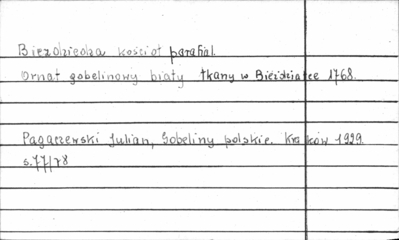 Bieździedza kościół parafial.
Ornat gobelinowy biały tkany w Bieździatce 1768.
Pagaczewski Julian, Gobeliny polskie. Kraków 1929.
s.77/78